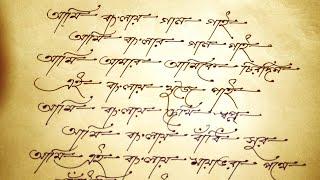 আমি বাংলার গান গাই
আমি বাংলার গান গাই
আমি আমার আমিকে চিরদিন
এই বাংলায় খুঁজে পাই
আমি বাংলায় দেখি স্বপ্ন
আমি বাংলায় বাঁধি সুর
আমি এই বাংলার মায়াভরা পথে